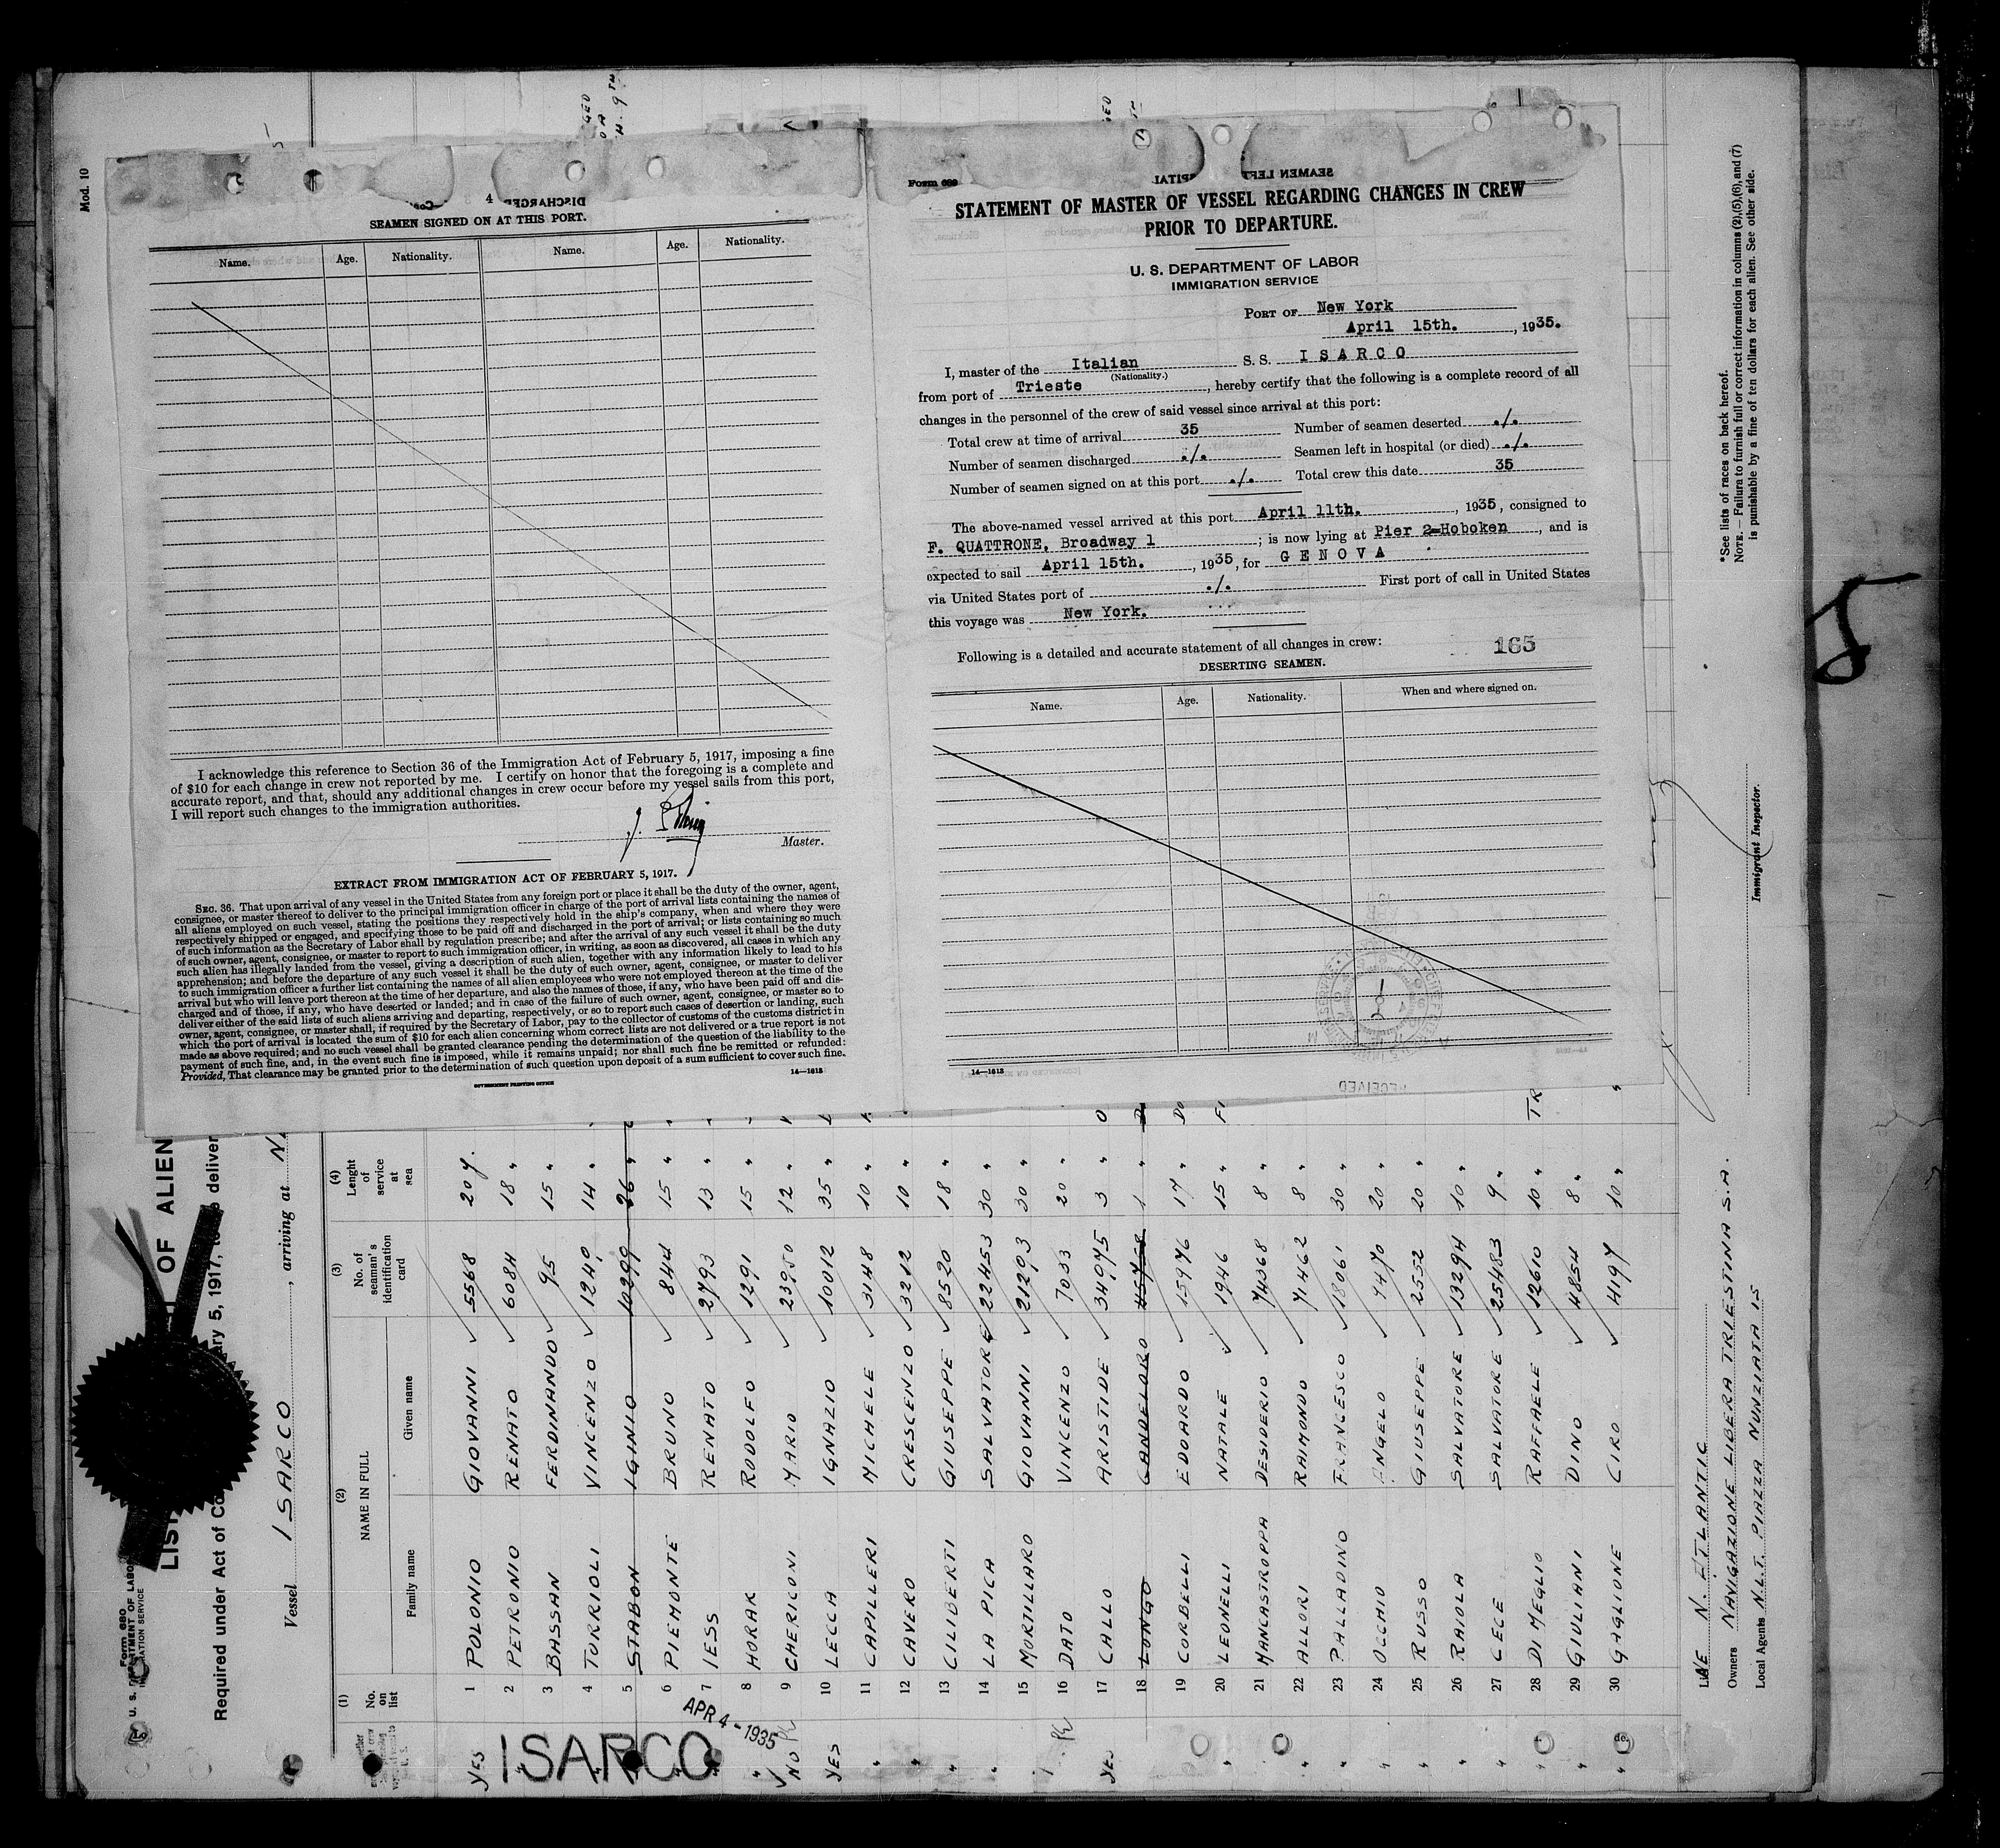 Mod. 10
4
SEAMEN SIGNED ON AT THIS PORT.
Name. Age. Nationality. Name. Age. Nationality.
I acknowledge this reference to Section 36 of the Immigration Act of February 5, 1917, imposing a fine
of $10 for each change in crew not reported by me. I certify on honor that the foregoing is a complete and
accurate report, and that, should any additional changes in crew occur before my vessel sails from this port,
I will report such changes to the immigration authorities.
Master.
EXTRACT FROM IMMIGRATION ACT OF FEBRUARY 5, 1917.
SEC. 36. That upon arrival of any vessel in the United States from any foreign port or place it shall be the duty of the owner, agent,
consignee, or master thereof to deliver to the principal immigration officer in charge of the port of arrival lists containing the names of
all aliens employed on such vessel, stating the positions they respectively hold in the ship's company, when and where they were
respectively shipped or engaged, and specifying those to be paid off and discharged in the port of arrival; or lists containing so much
of such information as the Secretary of Labor shall by regulation prescribe; and after the arrival of any such vessel it shall be the duty
of such owner, agent, consignee, or master to report to such immigration officer, in writing, as soon as discovered, all cases in which any
such alien has illegally landed from the vessel, giving a description of such alien, together with any information likely to lead to his
apprehension; and before the departure of any such vessel it shall be the duty of such owner, agent, consignee, or master to deliver
to such immigration officer a further list containing the names of all alien employees who were not employed thereon at the time of the
arrival but who will leave port thereon at the time of her departure, and also the names of those, if any, who have been paid off and dis-
charged and of those, if any, who have deserted or landed; and in case of the failure of such owner, agent, consignee, or master so to
deliver either of the said lists of such aliens arriving and departing, respectively, or so to report such cases of desertion or landing, such
owner, agent, consignee, or master shall, if required by the Secretary of Labor, pay to the collector of customs of the customs district in
which the port of arrival is located the sum of $10 for each alien concerning whom correct lists are not delivered or a true report is not
made as above required; and no such vessel shall be granted clearance pending the determination of the question of the liability to the
payment of such fine, and, in the event such fine is imposed, while it remains unpaid; nor shall such fine be remitted or refunded:
Provided, That clearance may be granted prior to the determination of such question upon deposit of a sum sufficient to cover such fine.
GOVERNMENT PRINTING OFFICE
14—1613
Form 689
STATEMENT OF MASTER OF VESSEL REGARDING CHANGES IN CREW
PRIOR TO DEPARTURE.
U. S. DEPARTMENT OF LABOR
IMMIGRATION SERVICE
PORT OF New York
April 15th. , 1935.
I, master of the Italian S. S. I S A R C O
(Nationality.)
from port of Trieste , hereby certify that the following is a complete record of all
changes in the personnel of the crew of said vessel since arrival at this port:
Total crew at time of arrival 35 Number of seamen deserted ./.
Number of seamen discharged ./. Seamen left in hospital (or died) ./.
Number of seamen signed on at this port ./. Total crew this date 35
The above-named vessel arrived at this port April 11th. , 1935, consigned to
F. QUATTRONE, Broadway 1 ; is now lying at Pier 2=Hoboken , and is
expected to sail April 15th. , 1935, for G E N O V A
via United States port of ./. First port of call in United States
this voyage was New York.
Following is a detailed and accurate statement of all changes in crew: 165
DESERTING SEAMEN.
Name. Age. Nationality. When and where signed on.
14—1613
RECEIVED
Form 680
U. S. DEPARTMENT OF LABOR
IMMIGRATION SERVICE
LIST OF ALIEN
Required under Act of Co ary 5, 1917, to be deliver
Vessel ISARCO , arriving at N
(1) No. on list
(2) NAME IN FULL
Family name Given name
(3) No. of seaman's identification card
(4) Lenght of service at sea
YES 1 POLONIO GIOVANNI 5568 20 y.
" 2 PETRONIO RENATO 6084 18 "
3 BASSAN FERDINANDO 95 15 "
" 4 TORRIOLI VINCENZO 1240 14 "
5 STABON IGINIO 10299 26 "
" 6 PIEMONTE BRUNO 844 15 "
" 7 IESS RENATO 2793 13 "
" 8 HORAK RODOLFO 1291 15 "
NO 9 CHERICONI MARIO 23950 12 "
YES 10 LECCA IGNAZIO 10012 35 "
" 11 CAPILLERI MICHELE 3148 10 "
" 12 CAVERO CRESCENZO 3212 10 "
" 13 CILIBERTI GIUSEPPE 8520 18 "
" 14 LA PICA SALVATORE 22453 30 "
15 MORTILLARO GIOVANNI 21293 30 "
16 DATO VINCENZO 7033 20 "
YES 17 CALLO ARISTIDE 34975 3 "
18 LONGO CANDELORO 45758 1 "
19 CORBELLI EDOARDO 15976 17 "
" 20 LEONELLI NATALE 1946 15 "
" 21 MANCASTROPPA DESIDERIO 74368 8 "
" 22 ALLORI RAIMONDO 71462 8 "
" 23 PALLADINO FRANCESCO 18061 30 "
" 24 OCCHIO ANGELO 7470 20 "
" 25 RUSSO GIUSEPPE 2552 20 "
" 26 RAIOLA SALVATORE 13294 10 "
" 27 CECE SALVATORE 25483 9 "
" 28 DI MEGLIO RAFFAELE 12610 10 "
" 29 GIULIANI DINO 4854 8 "
" 30 GAGLIONE CIRO 4197 10 "
ISARCO
APR 4 - 1935
Line N. ATLANTIC
Owners NAVIGAZIONE LIBERA TRIESTINA S.A.
Local Agents N.L.T. PIAZZA NUNZIATA 15
*See lists of races on back hereof.
NOTE.—Failura to furnish full or correct information in columns (2),(5),(6), and (7)
is punishable by a fine of ten dollars for each alien. See other side.
Immigrant Inspector.
5